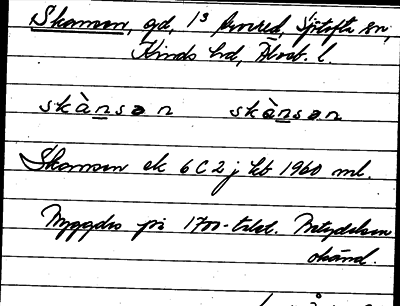 Skansen, gd, 1³ Svared, Sjötofta sn,
Kinds hd, Älvsb. l.
skànsən skànsən
Skansen ek 6C2j kb 1960 ml.
Byggdes på 1700-talet. Betydelsen
okänd.